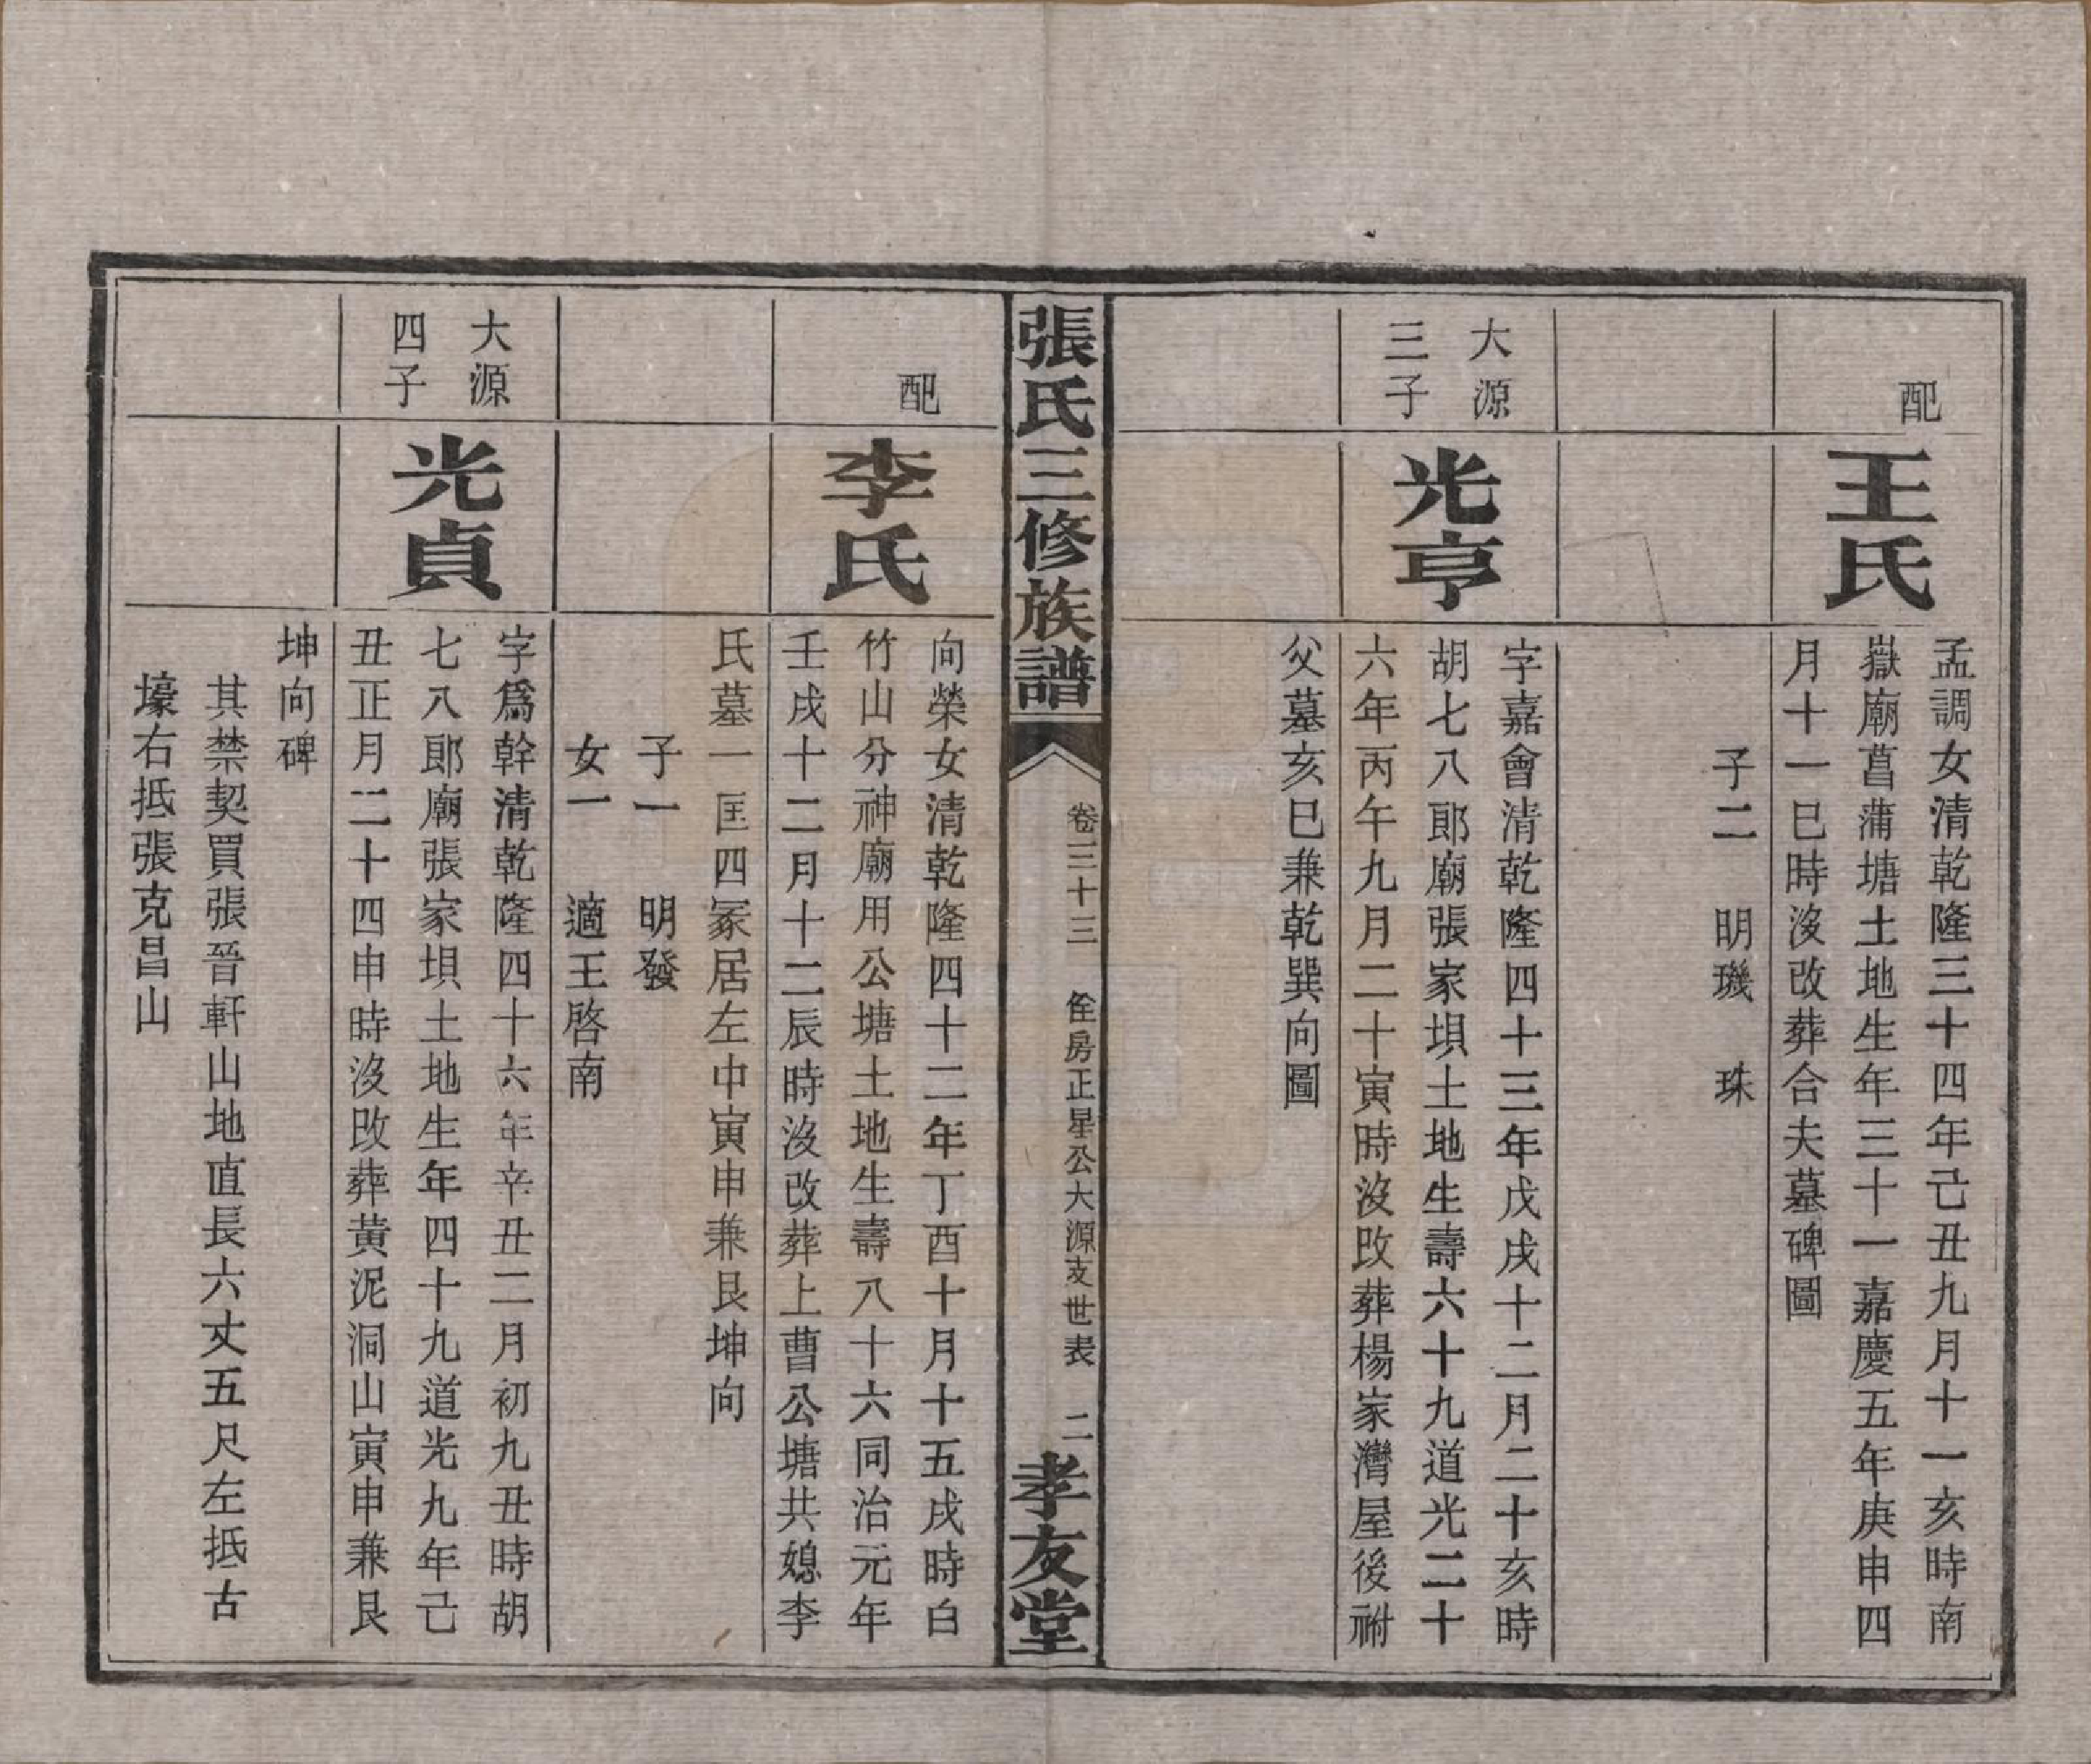 配
王氏
孟調女清乾隆三十四年己丑九月十一亥時南
嶽廟菖蒲塘土地生年三十一嘉慶五年庚申四
月十一巳時沒改葬合夫墓碑圖
子二　明璣　珠
大源
三子
光亨
字嘉會清乾隆四十三年戊戌十二月二十亥時
胡七八郎廟張家垻土地生壽六十九道光二十
六年丙午九月二十寅時沒改葬楊家灣屋後祔
父墓亥巳兼乾巽向圖
張氏三修族譜
卷三十三　佺房正星公大源支世表　二
孝友堂
配
李氏
向榮女清乾隆四十二年丁酉十月十五戌時白
竹山分神廟用公塘土地生壽八十六同治元年
壬戌十二月十二辰時沒改葬上曹公塘共媳李
氏墓一匡四冢居左中寅申兼艮坤向
子一　明發
女一　適王啓南
大源
四子
光貞
字爲幹清乾隆四十六年辛丑二月初九丑時胡
七八郎廟張家垻土地生年四十九道光九年己
丑正月二十四申時沒改葬黃泥洞山寅申兼艮
坤向碑
其禁契買張晉軒山地直長六丈五尺左抵古
壕右抵張克昌山